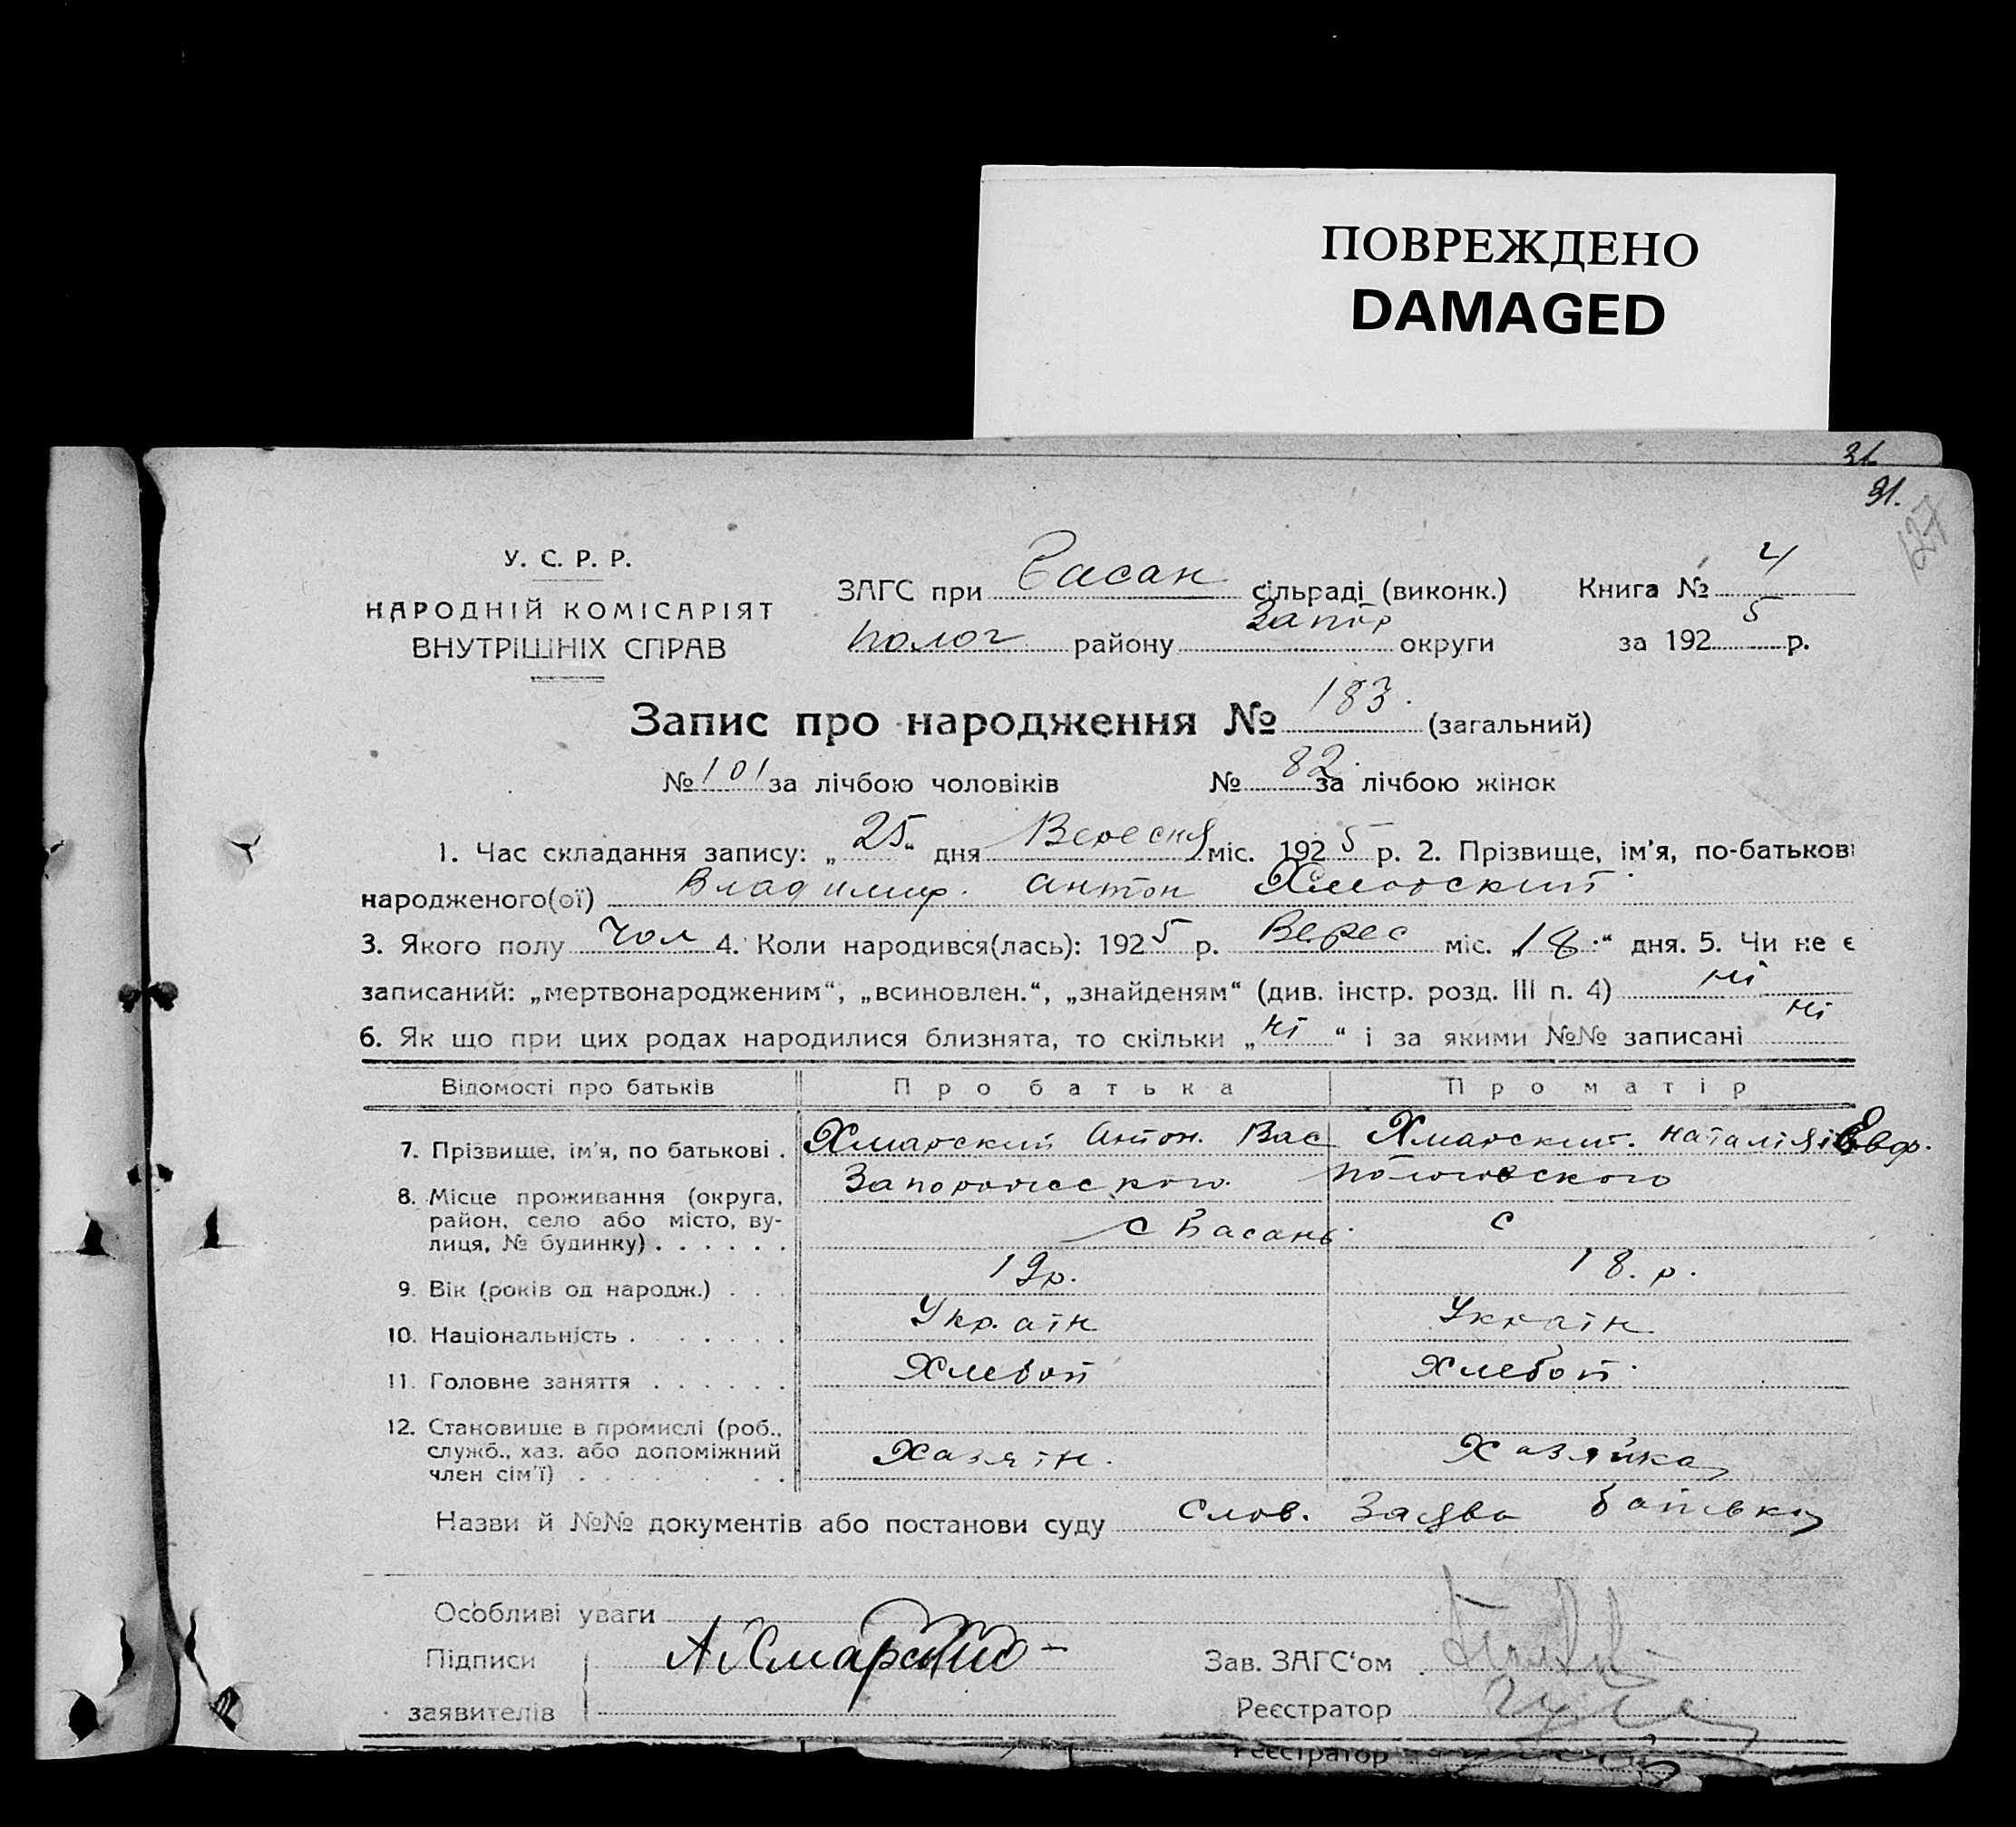 ПОВРЕЖДЕНО
DAMAGED
31.
127
У. С. Р. Р.
НАРОДНІЙ КОМІСАРІЯТ
ВНУТРІШНІХ СПРАВ
ЗАГС при Басан сільраді (виконк.) Книга № 4
Полог району Запор округи за 1925 р.
Запис про народження № 183. (загальний)
№ 101 за лічбою чоловіків № 82 за лічбою жінок
1. Час складання запису: „25“ дня Вересня міс. 1925 р. 2. Прізвище, ім’я, по-батькові
народженого(ої) Владимир. Антон Хмарский
3. Якого полу Чол 4. Коли народився(лась): 1925 р. Верес міс. „18.“ дня. 5. Чи не є
записаний: „мертвонародженим“, „всиновлен.“, „знайденям“ (див. інстр. розд. III п. 4) ні
6. Як що при цих родах народилися близнята, то скільки „ні“ і за якими №№ записані ні
Відомості про батьків Про батька Про матір
7. Прізвище, ім’я, по батькові . Хмарский Антон. Вас Хмарский. Наталія Евф.
8. Місце проживання (округа, район, село або місто, вулиця, № будинку) . . . . . . Запорожского Пологовского
с Басань с
9. Вік (років од народж.) . . . 19р. 18. р.
10. Національність . . . . . . . Украін Украін
11. Головне заняття . . . . . . Хлебоп Хлебоп
12. Становище в промислі (роб., служб., хаз. або допоміжний член сім’ї) . . . . . . . Хазяін. Хазяйка
Назви й №№ документів або постанови суду Слов. Заява батька
Особливі уваги
Підписи А Хмарский Зав. ЗАГС‘ом
заявителів Реєстратор
Реєстратор